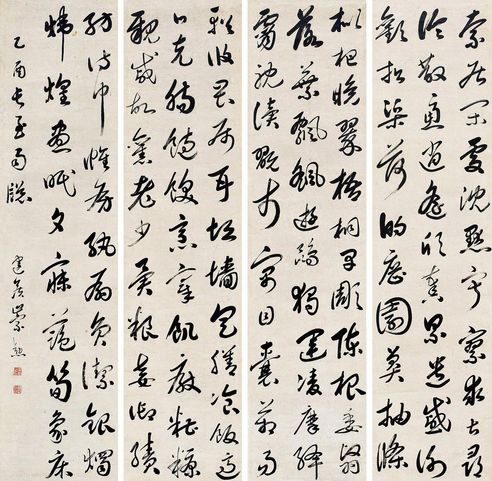 索居閑處沈默寂寥求古尋
論散慮逍遙欣奏累遣慼謝
歡招渠荷的歷園莽抽條
枇杷晚翠梧桐早彫陳根委翳
落葉飄颻遊鵾獨運凌摩絳
霄耽讀翫市寓目囊箱易
輶攸畏屬耳垣墻具膳飡飯適
口充腸飽飫烹宰飢厭糟糠
親戚故舊老少異糧妾御績
紡侍巾帷房紈扇員潔銀燭
煒煌晝眠夕寐藍筍象床
乙酉長至雨牕